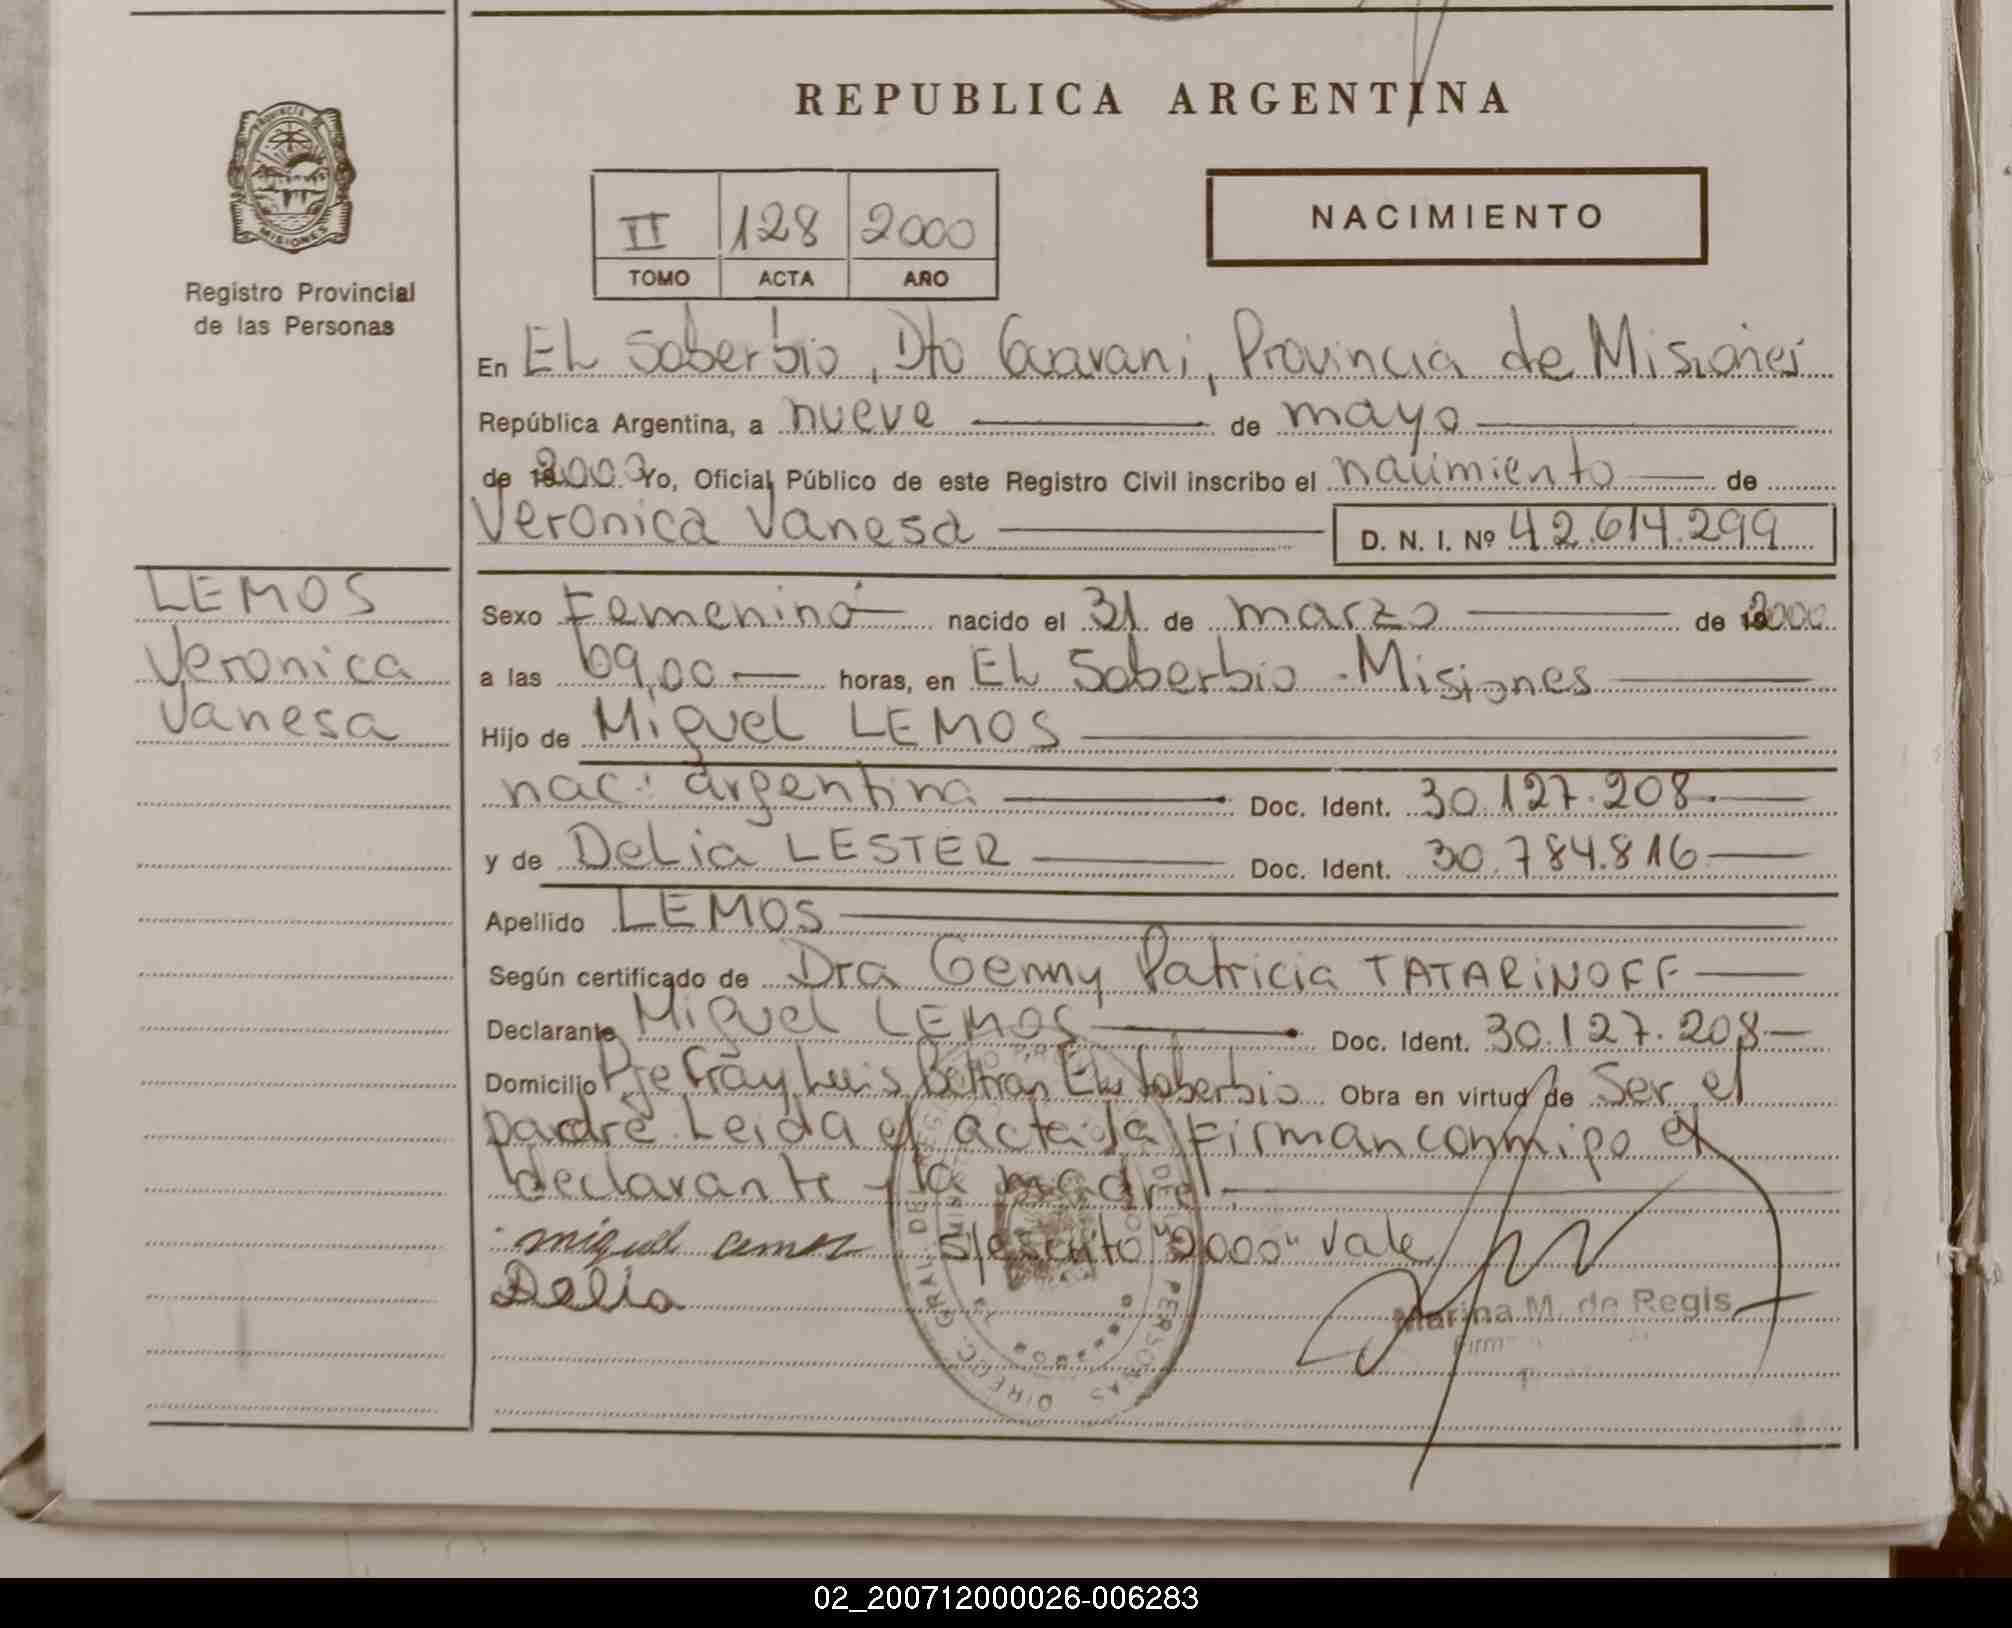 REPUBLICA ARGENTINA
PROVINCIA DE
MISIONES
Registro Provincial
de las Personas
II 128 2000
TOMO ACTA AÑO
NACIMIENTO
En EL Soberbio, Dto Guarani, Provincia de Misiones
República Argentina, a nueve de mayo
de 2000 Yo, Oficial Público de este Registro Civil inscribo el nacimiento de
Veronica Vanesa D. N. I. Nº 42.614.299
LEMOS
Veronica
Vanesa
Sexo Femenino nacido el 31 de marzo de 2000
a las 09,00 horas, en EL Soberbio - Misiones
Hijo de Miguel LEMOS
nac: argentina Doc. Ident. 30.127.208
y de Delia LESTER Doc. Ident. 30.784.816
Apellido LEMOS
Según certificado de Dra Genny Patricia TATARiNOFF
Declarante Miguel LEMOS Doc. Ident. 30.127.208
Domicilio Pje Fray Luis Beltran EL Soberbio Obra en virtud de Ser el
padre. Leida el acta la firman conmigo el
declarante y la madre
miguel lemos s/escrito "2000" vale
Delia
Marina M. de Regis
DIRECC. GRAL. DEL PERSONAS
02_200712000026-006283